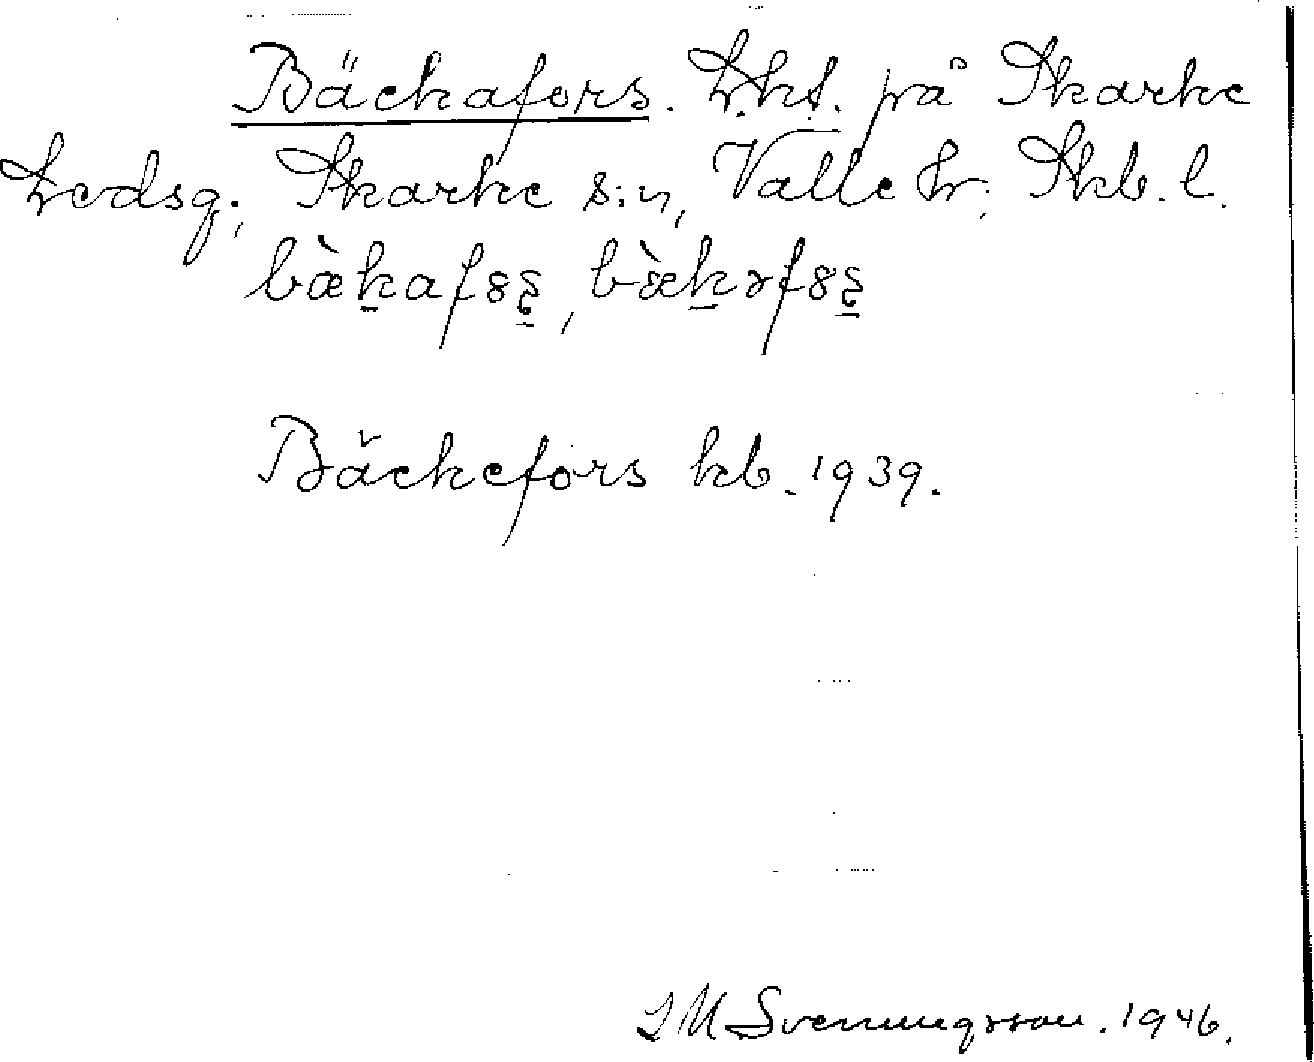 Bäckafors. Lht. på Skarke
Ledsg., Skarke s:n, Valle hr. Skb. l.
bæ̀kafss, bæ̀kəfss
Bäckefors kb. 1939.
J M Svenungsson. 1946.